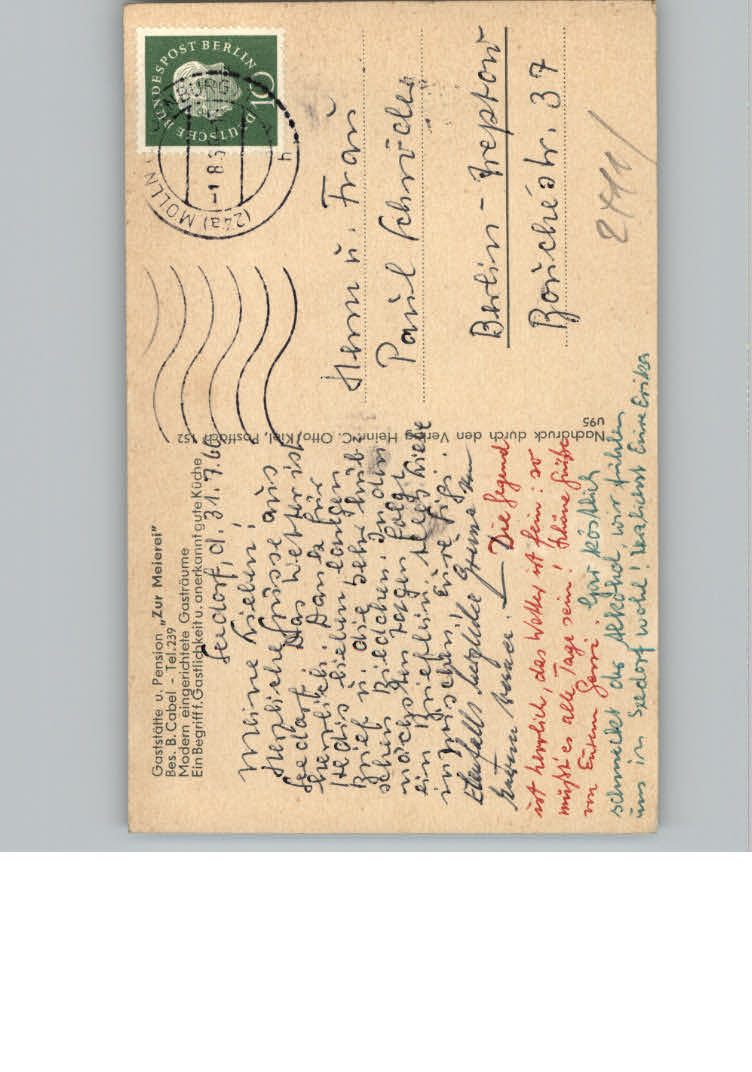 Gaststätte u. Pension „Zur Meierei"
Bes. B. Cabel - Tel. 239
Modern eingerichtete Gasträume
Ein Begriff f. Gastlichkeit u. anerkannt gute Küche
Seedorf, d. 31.7.60
Meine Lieben!
Herzliche Grüsse aus
Seedorf. Das Wetter ist
herrlich. Dank für
Hedis lieben langen
Brief u. die sehr hüb-
schen Bildchen. In den
nächsten Tagen folgt
ein Brieflein. Alles Liebe
inzwischen! Eure
Ebenfalls herzliche Grüsse von
Eurem
Die Gegend
ist herrlich, das Wetter ist fein: so
müßt' es alle Tage sein! Schöne Grüße
von Eurem Gerri. Gar köstlich
schmeckt der Alkohol, wir fühlen
uns in Seedorf wohl! Eure Erika
Nachdruck durch den Verlag Heinr. C. Otto, Kiel, Postfach 152
U95
DEUTSCHE BUNDESPOST BERLIN
10
(24a) MÖLLN
-1.8.6
Herrn u. Frau
Paul Schröder
Berlin-Treptow
Bouchéstr. 37